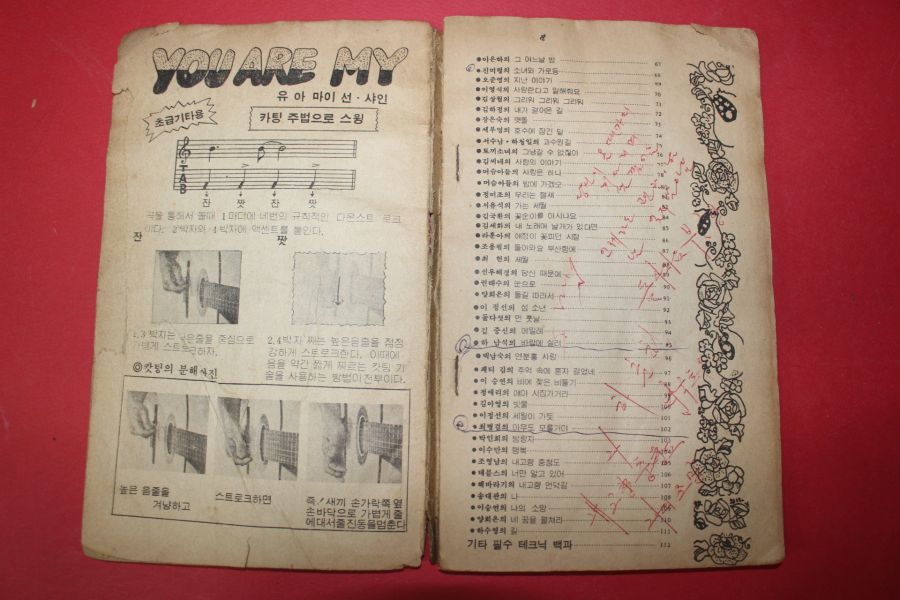 YOU ARE MY
유 아 마이 선·샤인
초급기타용
카팅 주법으로 스윙
T
A
B
잔 짯 잔 짯
곡을 통해서 볼때 1마디에 네번의 규칙적인 다운스트 로크
이다. 2박자와 4박자에 액센트를 붙인다.
잔 짯
1.3 박자는 낮은줄을 중심으로
가볍게 스트로크하자.
2.4 박자 째는 높은음줄을 점점
강하게 스트로크한다. 이때에
음을 약간 짧게 찌르는 캇팅 기
술을 사용하는 방법이전부이다.
◎캇팅의 분해사진
높은 음줄을
겨냥하고
스트로크하면
즉! 새끼 손가락쪽 옆
손바닥으로 가볍게 줄
에대서줄진동을멈춘다
●이은하의 그 어느날 밤 67
●진미령의 소녀와 가로등 68
●오준영의 지난 이야기 69
●이영식의 사랑한다고 말해줘요 70
●김상월의 그리워 그리워 그리워 71
●김하정의 내가 걸어온 길 72
●장은숙의 맷돌 73
●세부엉의 호수에 잠긴 달 74
●서수남·하청일의 과수원길 75
●토끼소녀의 그냥갈 수 없잖아 76
●김씨네의 사랑의 이야기
●머슴아들의 사랑은 하나
●머슴아들의 밤에 가겠오
●정미조의 우리는 철새
●서유석의 가는 세월
●김국환의 꽃순이를 아시나요 84
●김세화의 내 노래에 날개가 있다면 85
●라훈아의 애정이 꽃피던 시절 86
●조용필의 돌아와요 부산항에 87
●최 헌의 세월
●선우혜경의 당신 때문에
●민태수의 눈으로 90
●양희은의 들길 따라서 91
●이 정선의 섬 소년 92
●꿀다섯의 먼 훗날 93
●김 중신의 에밀레 94
●하 남석의 바람에 실려 95
●백남숙의 연분홍 사랑 96
●패티 김의 추억 속에 혼자 걸었네
●이 승연의 비에 젖은 비둘기 98
●정애리의 얘야 시집가거라
●김아영의 빗물
●이정선의 세월이 가듯 101
●최병걸의 아무도 모를거야 102
●박인희의 방랑자 103
●이수만의 행복 104
●조영남의 내고향 충청도 105
●데블스의 너만 알고 있어 106
●해바라기의 내고향 언덕길 107
●송대관의 나 108
●이승연의 나의 소망 109
●양희은의 네 꿈을 펼쳐라 110
●하수영의 길 111
기타 필수 테크닉 백과 112